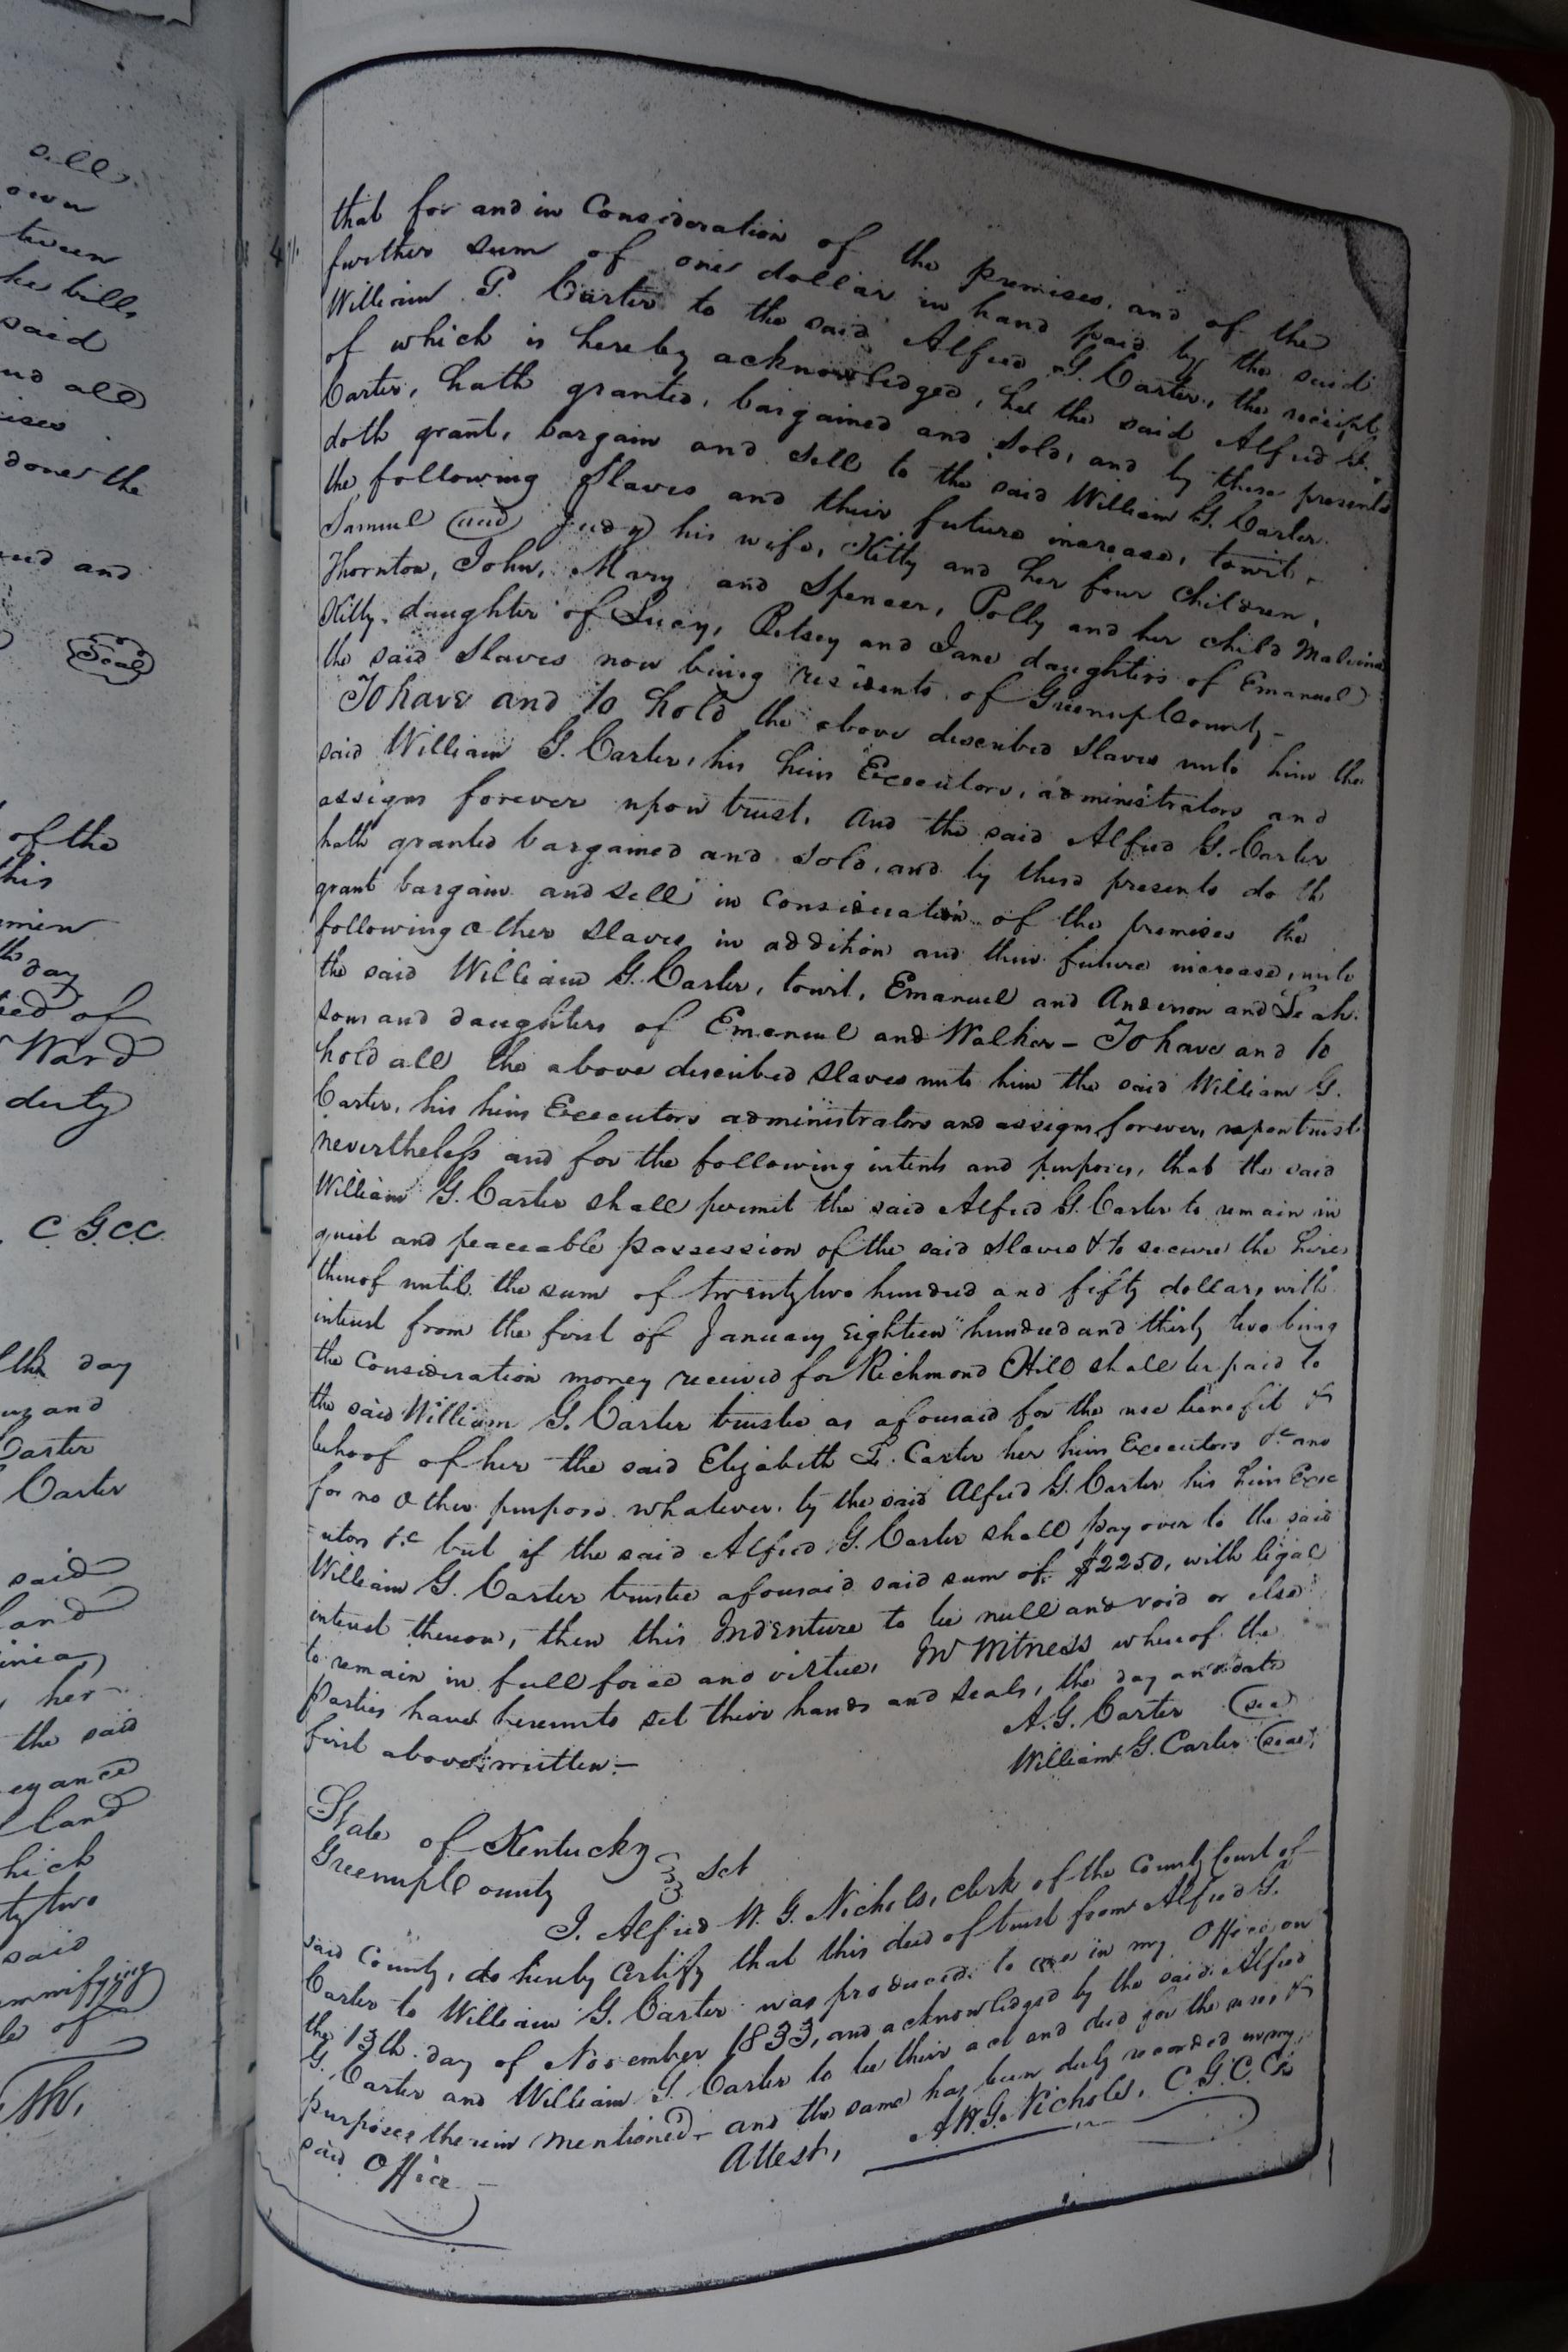 all,
own
tween
he bills
said
nd all
ises.
done the
ed and
Seal
of the
his
men
th day
ied of
Ward
duty
C G C C
the day
ug and
Carter
Carter
said
land
inia,
her
the said
eyance
land
hich
ty two
said
mnifying
le of
that for and in Consideration of the premises, and of the
further sum of one dollar in hand paid by the said
William G. Carter to the said Alfred G. Carter, the receipt
of which is hereby acknowledged, he the said Alfred G.
Carter, hath granted, bargained and sold, and by these presents
doth grant, bargain and sell to the said William G. Carter
the following Slaves and their future increase, towit,
Samuel and Judy his wife, Kitty and her four children,
Thornton, John, Mary and Spencer, Polly and her child Malvina
Kitty daughter of Lucy, Betsey and Jane daughters of Emanuel
the said Slaves now being residents of Greenup County -
To have and to hold the above described Slaves unto him the
said William G. Carter, his heirs Executors, administrators and
assigns forever upon trust. And the said Alfred G. Carter
hath granted bargained and sold, and by these presents doth
grant bargain and sell in consideration of the premises the
following other Slaves in addition and their future increase, unto
the said William G. Carter, towit, Emanuel and Anderson and Leah
sons and daughters of Emanuel and Walker - To have and to
hold all the above described Slaves unto him the said William G.
Carter, his heirs Executors administrators and assigns forever, upon trust
nevertheless and for the following intents and purposes, that the said
William G. Carter shall permit the said Alfred G. Carter to remain in
quiet and peaceable possession of the said Slaves & to secure the hire
thereof until the sum of twenty two hundred and fifty dollars with
interest from the first of January Eighteen hundred and thirty two being
the Consideration money received for Richmond Hill shall be paid to
the said William G. Carter trustee as aforesaid for the use benefit &
behoof of her the said Elizabeth L. Carter her heirs Executors &c and
for no other purpose whatever. by the said Alfred G. Carter his heirs Exec
=utors &c but if the said Alfred G. Carter shall pay over to the said
William G. Carter trustee aforesaid said sum of $2250, with legal
interest thereon, then this Indenture to be null and void or else
to remain in full force and virtue, In Witness whereof the
parties have hereunto set their hands and seals, the day and date
first above written -
A. G. Carter (seal)
William G. Carter (seal)
State of Kentucky
Greenup County Sct
I. Alfred W. G. Nichols, clerk of the County Court of
said County, do hereby Certify that this deed of trust from Alfred G.
Carter to William G. Carter was produced to me in my Office on
the 13th day of November 1833, and acknowledged by the said Alfred
G. Carter and William G. Carter to be their act and deed for the uses &
purposes therein mentioned - and the same has been duly recorded in my
said Office -
Attest, A W G. Nichols, C. G. C. C.